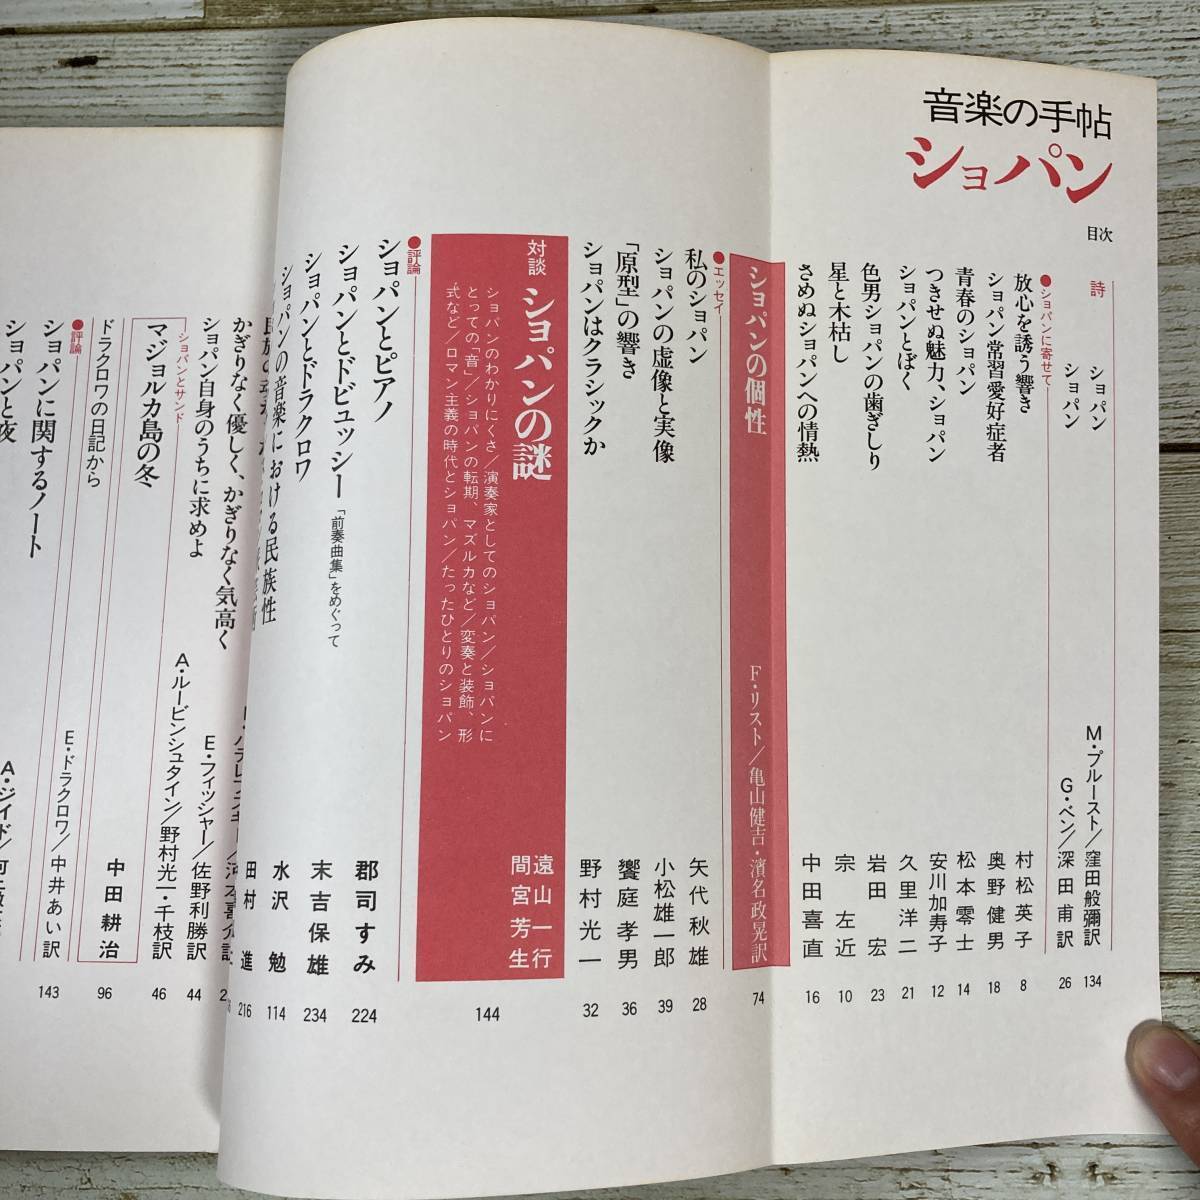 音楽の手帖
ショパン
目次
詩
ショパン M・プルースト／窪田般彌訳 134
ショパン G・ベン／深田甫訳 26
●ショパンに寄せて
放心を誘う響き 村松英子 8
ショパン常習愛好症者 奥野健男 18
青春のショパン 松本零士 14
つきせぬ魅力、ショパン 安川加寿子 12
ショパンとぼく 久里洋二 21
色男ショパンの歯ぎしり 岩田宏 23
星と木枯し 宗左近 10
さめぬショパンへの情熱 中田喜直 16
ショパンの個性 F・リスト／亀山健吉・濱名政晃訳 74
●エッセイ
私のショパン 矢代秋雄 28
ショパンの虚像と実像 小松雄一郎 39
「原型」の響き 饗庭孝男 36
ショパンはクラシックか 野村光一 32
対談 ショパンの謎 遠山一行 間宮芳生 144
ショパンのわかりにくさ／演奏家としてのショパン／ショパンに
とっての「音」／ショパンの転期、マズルカなど／変奏と装飾、形
式など／ロマン主義の時代とショパン／たったひとりのショパン
●評論
ショパンとピアノ 郡司すみ 224
ショパンとドビュッシー 「前奏曲集」をめぐって 末吉保雄 234
ショパンとドラクロワ 水沢勉 114
ショパンの音楽における民族性 田村進 216
かぎりなく優しく、かぎりなく気高く
ショパン自身のうちに求めよ E・フィッシャー／佐野利勝訳 44
ショパンとサンド
A・ルービンシュタイン／野村光一・千枝訳 46
マジョルカ島の冬 中田耕治 96
ドラクロワの日記から E・ドラクロワ／中井あい訳 143
●評論
ショパンに関するノート A・ジイド／
ショパンと夜